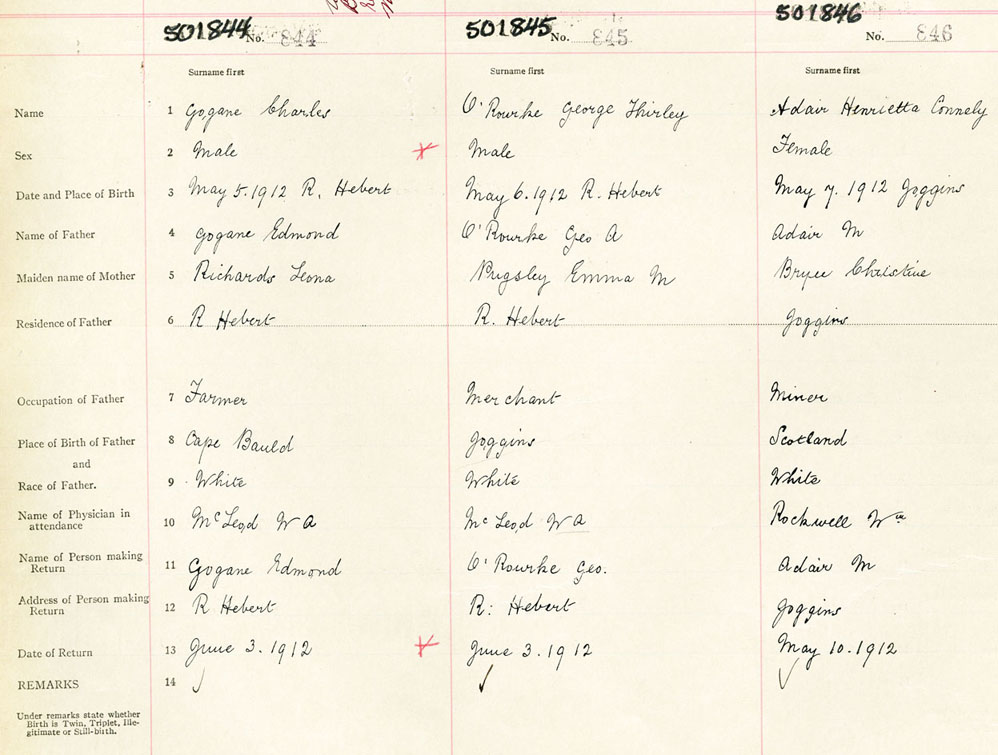 501844 No. 844 501845 No. 845 501846 No. 846
Surname first Surname first Surname first
Name 1 Gogane Charles O'Rourke George Thirley Adair Henrietta Connely
Sex 2 Male Male Female
Date and Place of Birth 3 May 5. 1912 R. Hebert May 6. 1912 R. Hebert May 7. 1912 Joggins
Name of Father 4 Gogane Edmond O'Rourke Geo A Adair M
Maiden name of Mother 5 Richards Leona Pugsley Emma M Bryce Christine
Residence of Father 6 R Hebert R. Hebert Joggins
Occupation of Father 7 Farmer Merchant Miner
Place of Birth of Father 8 Cape Bauld Joggins Scotland
and
Race of Father. 9 White White White
Name of Physician in
attendance 10 McLeod W A McLeod W A Rockwell Wm
Name of Person making
Return 11 Gogane Edmond O'Rourke Geo. Adair M
Address of Person making
Return 12 R Hebert R: Hebert Joggins
Date of Return 13 June 3. 1912 June 3. 1912 May 10. 1912
REMARKS 14
Under remarks state whether
Birth is Twin, Triplet, Ille-
gitimate or Still-birth.